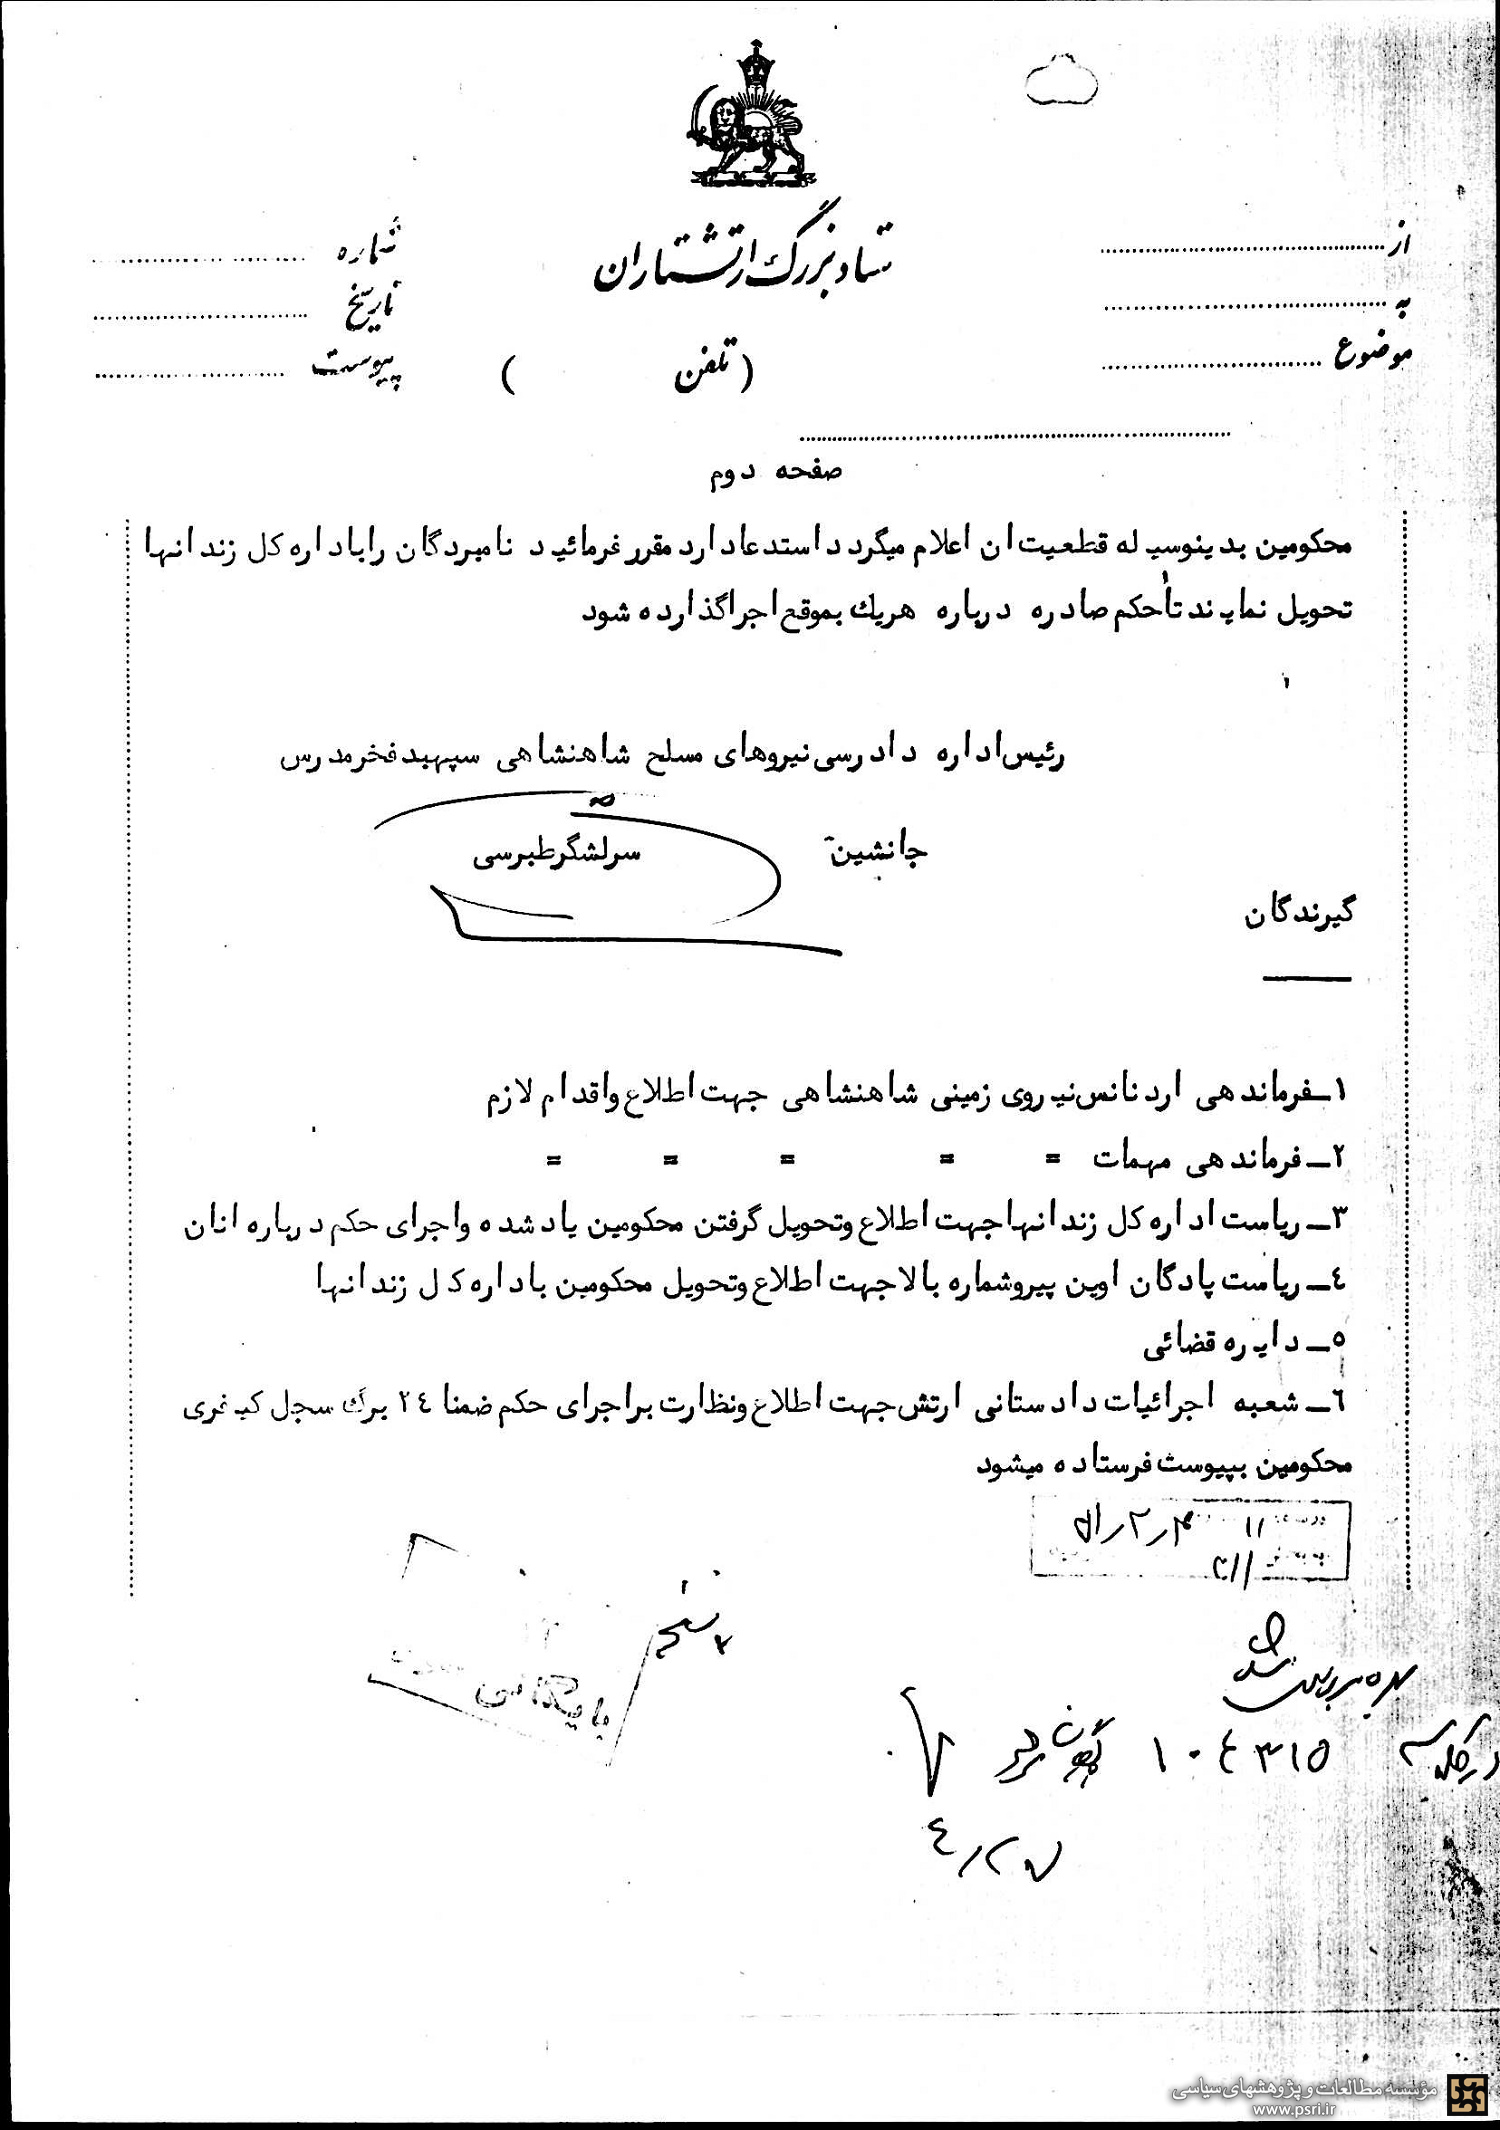 ستاد بزرگ ارتشتاران
از
به
موضوع
شماره
تاریخ
پیوست
(تلفن )
صفحه دوم
محکومین بدینوسیله قطعیت ان اعلام میگردد استدعا دارد مقرر فرمائید نامبردگان را باداره کل زندانها
تحویل نمایند تا حکم صادره درباره هریک بموقع اجرا گذارده شود
رئیس اداره دادرسی نیروهای مسلح شاهنشاهی سپهبد فخرمدرس
جانشین سرلشگر طبرسی
گیرندگان
۱ـ فرماندهی اردنانس نیروی زمینی شاهنشاهی جهت اطلاع واقدام لازم
۲ـ فرماندهی مهمات = = = = =
۳ـ ریاست اداره کل زندانها جهت اطلاع وتحویل گرفتن محکومین یاد شده واجرای حکم درباره انان
٤ـ ریاست پادگان اوین پیروشماره بالا جهت اطلاع وتحویل محکومین باداره کل زندانها
٥ـ دایره قضائی
٦ـ شعبه اجرائیات دادستانی ارتش جهت اطلاع ونظارت براجرای حکم ضمنا ۲٤ برگ سجل کیفری
محکومین بپیوست فرستاده میشود
بایگانی
۱۰٤۳۱٥
مؤسسه مطالعات و پژوهشهای سیاسی
www.psri.ir